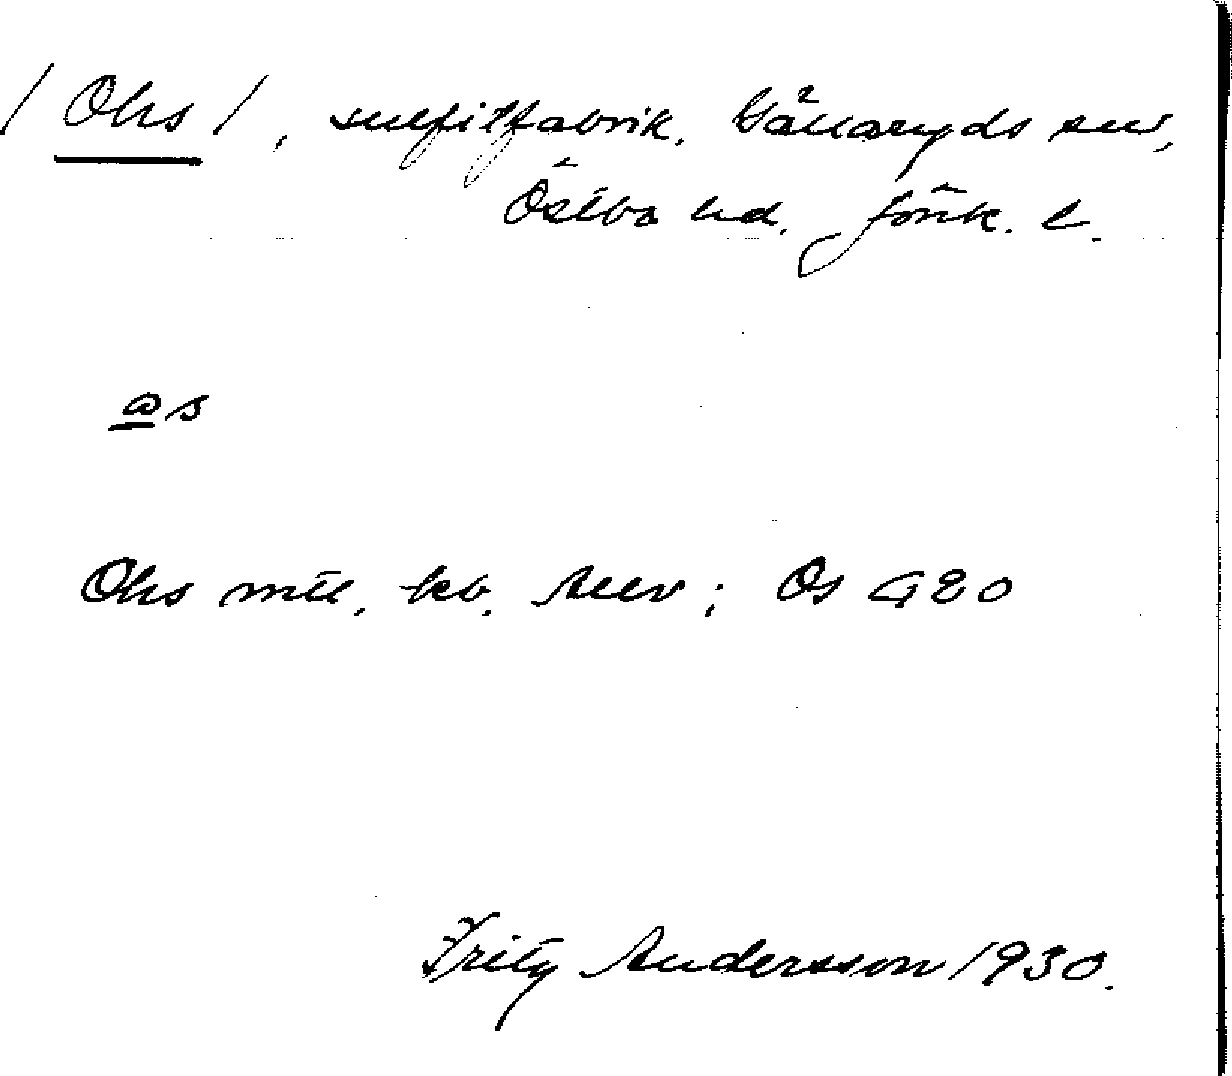 /Ohs/, sulfitfabrik, Gällaryds sn,
Östbo hd, Jönk. l.
as
Ohs mtl, kb. Alev; Os G20
Fritz Andersson 1930.